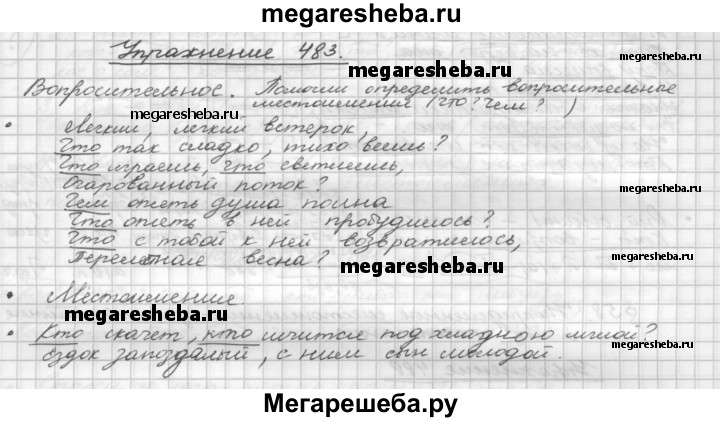 megaresheba.ru
Упражнение 483.
megaresheba.ru
megaresheba.ru
Вопросительное. Помогли определить вопросительные
местоимения (что? Чем? )
megaresheba.ru
megaresheba.ru
• Легкий, легкий ветерок,
Что так сладко, тихо веешь?
Что играешь, что светлеешь,
Очарованный поток?
megaresheba.ru
Чем опять душа полна
Что опять в ней пробудилось?
Что с тобой к ней возвратилось,
Перелетная весна?
megaresheba.ru
megaresheba.ru
• Местоимения.
megaresheba.ru
• Кто скачет, кто мчится под хладною мглой?
ездок запоздалый, с ним сын молодой.
megaresheba.ru
Мегарешеба.ру